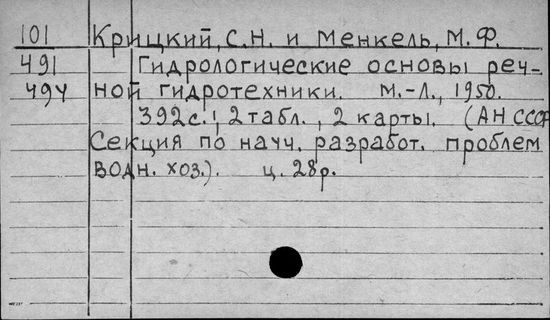 101 Крицкий, С.Н. и Менкель, М.Ф.
491 Гидрологические основы реч-
494 ной гидротехники. М.-Л., 1950.
392с.; 2 табл., 2 карты. (АН СССР
Секция по науч. разработ. проблем
водн. хоз.). ц. 28р.